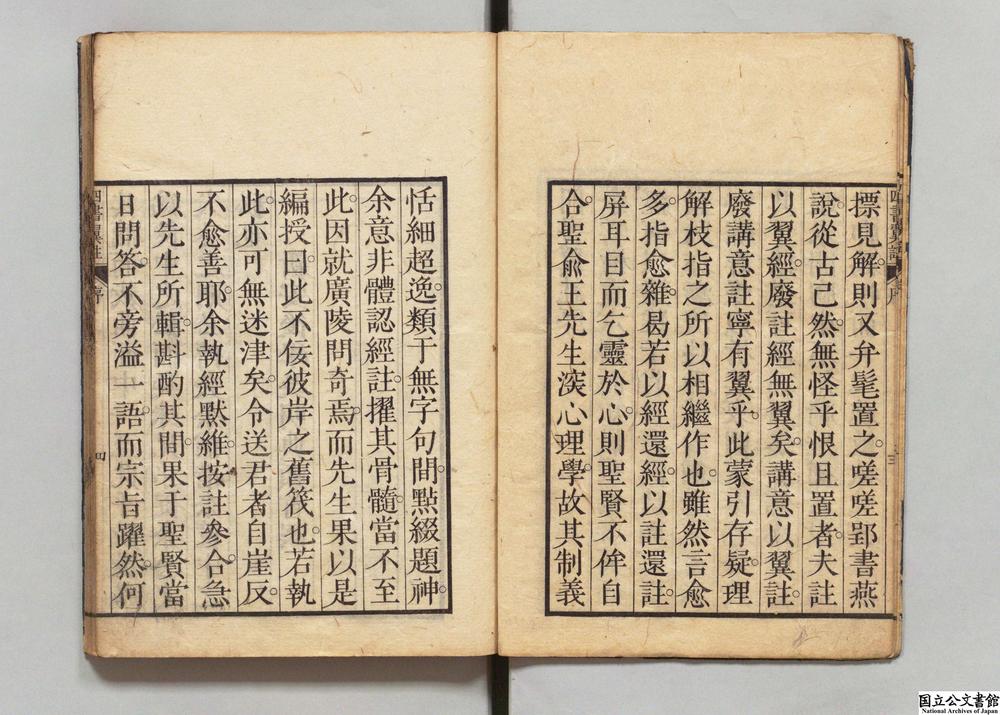 摽見解則又弁髦置之嗟嗟郢書燕
說從古已然無怪乎恨且置者夫註
以翼經廢註經無翼矣講意以翼註
廢講意註寧有翼乎此蒙引存疑理
解枝指之所以相繼作也雖然言愈
多指愈雜曷若以經還經以註還註
屏耳目而乞靈於心則聖賢不侔自
合聖俞王先生深心理學故其制義
恬細超逸類于無字句間點綴題神
余意非體認經註擢其骨髓當不至
此因就廣陵問奇焉而先生果以是
編授曰此不佞彼岸之舊筏也若執
此亦可無迷津矣令送君者自崖反
不愈善耶余執經默維按註參合急
以先生所輯斟酌其間果于聖賢當
日問答不旁溢一語而宗旨躍然何
序
四
三
国立公文書館
National Archives of Japan